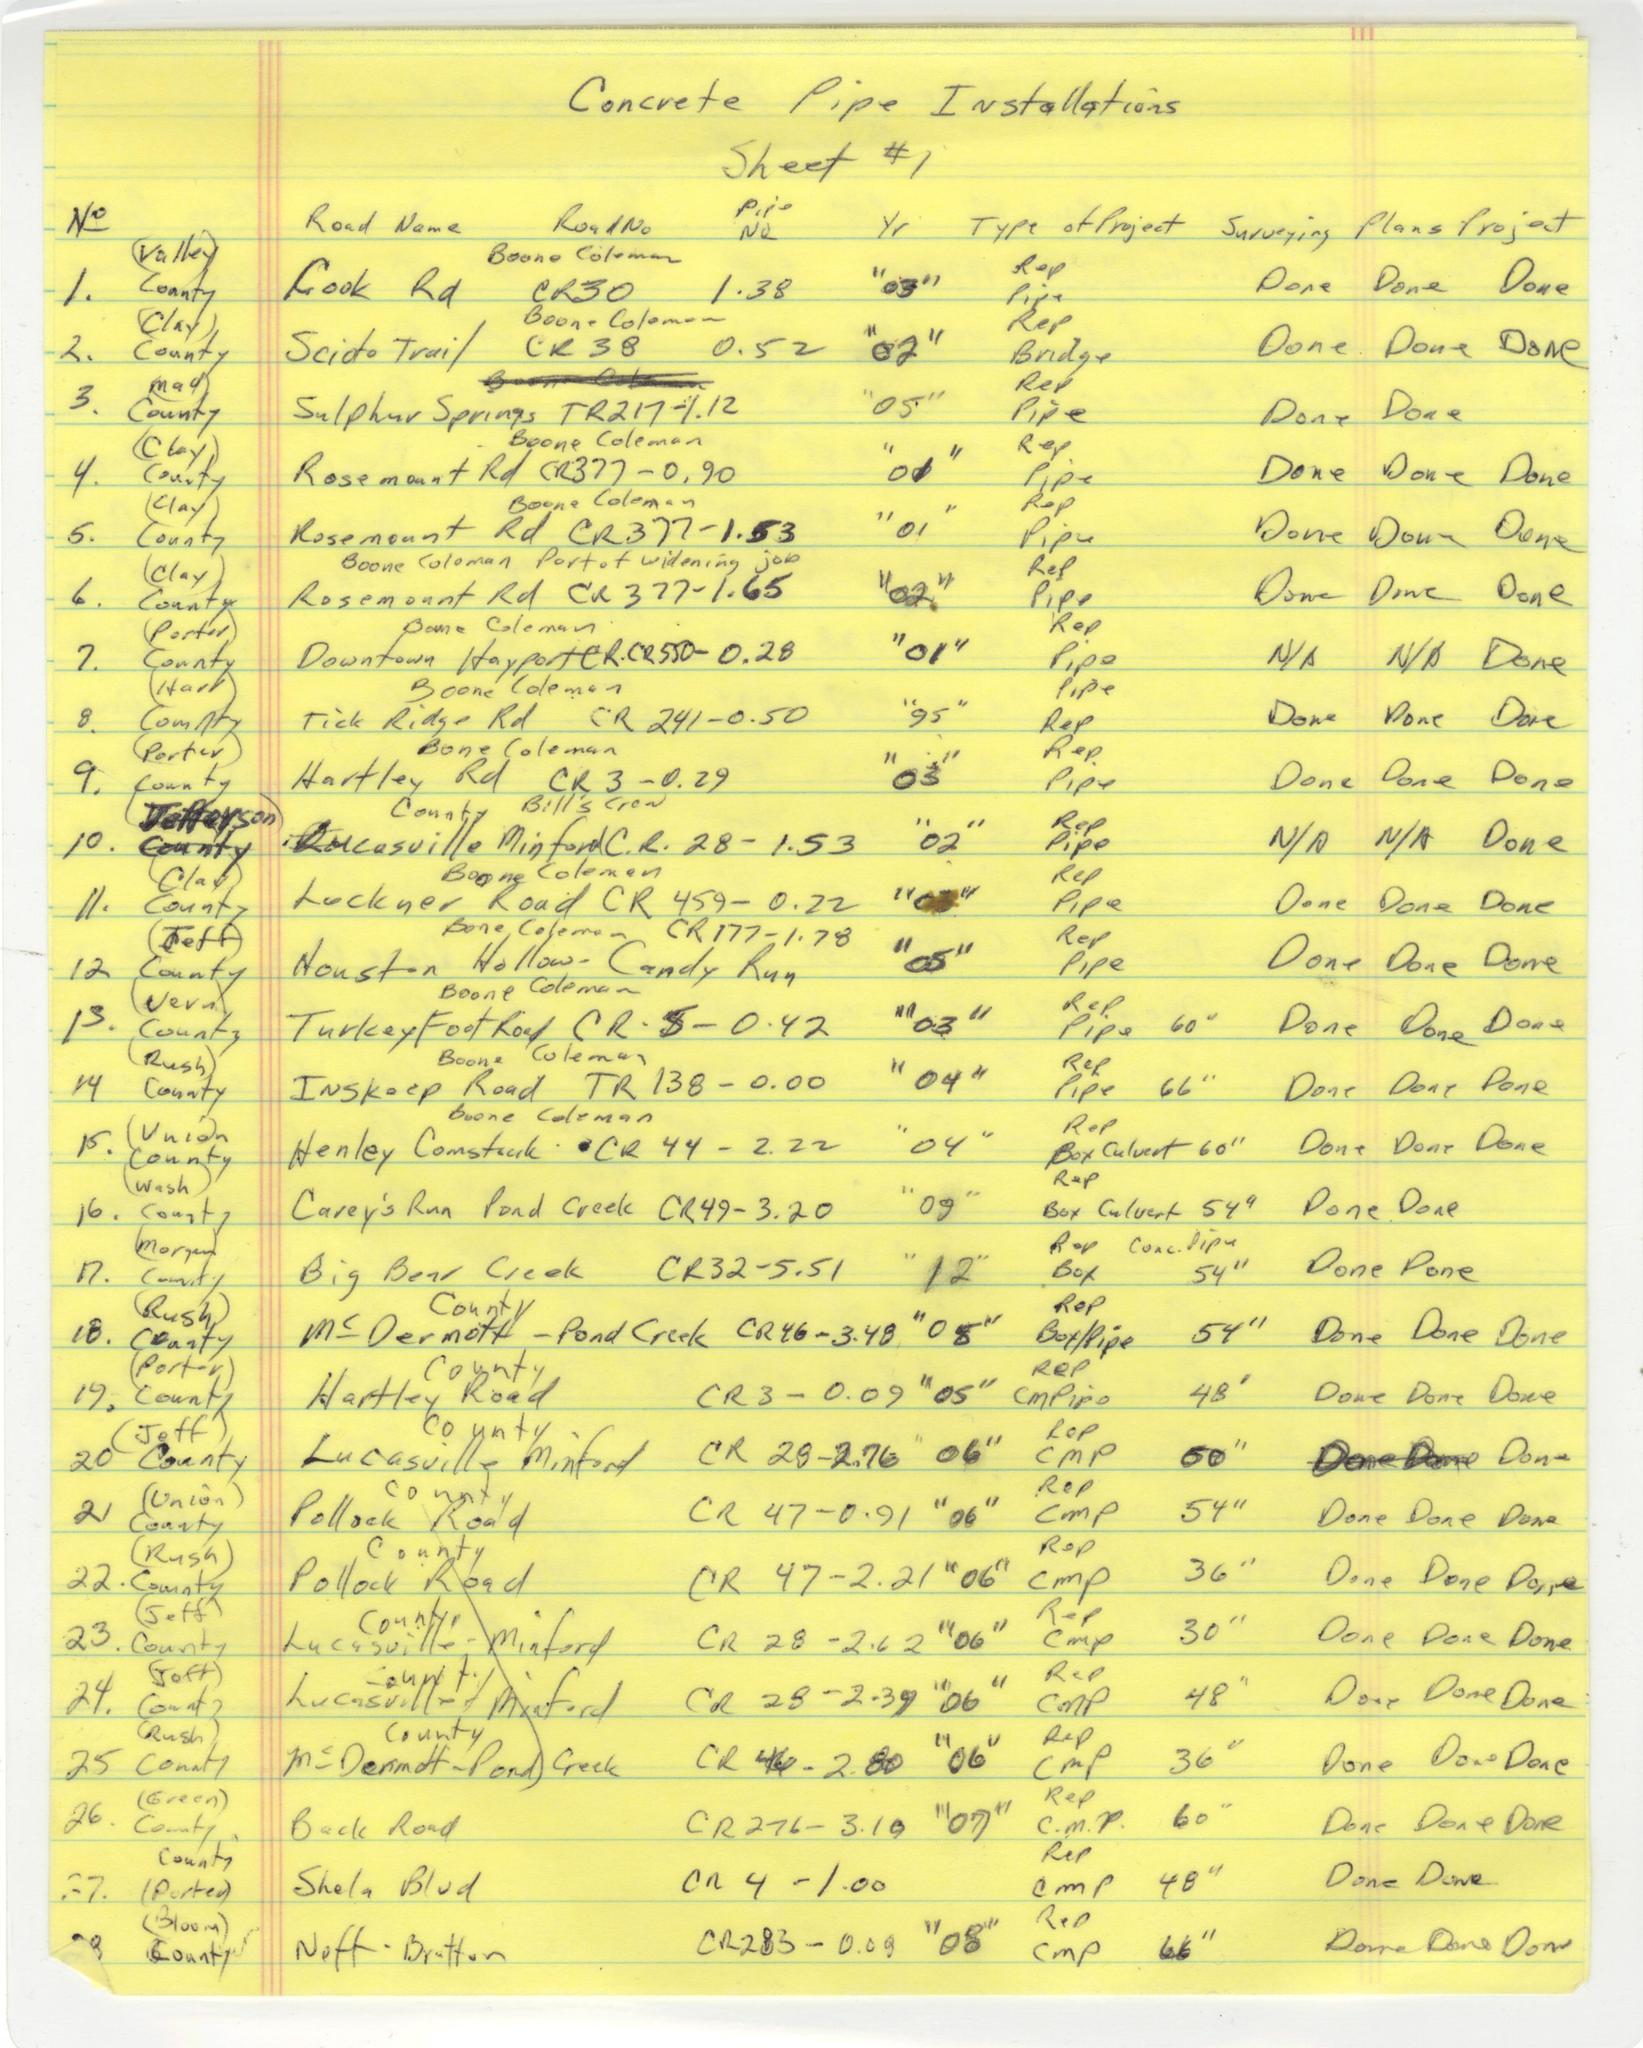 Concrete Pipe Installations
Sheet #1
No Road Name Road No Pipe No Yr Type of Project Surveying Plans Project
(Valley) Boone Coleman Rep
1. County Cook Rd CR30 1.38 "03" Pipe Done Done Done
(Clay) Boone Coleman Rep
2. County Scioto Trail CR 38 0.52 "02" Bridge Done Done Done
(Mad) Boone Coleman Rep
3. County Sulphur Springs TR217-1.12 "05" Pipe Done Done
(Clay) Boone Coleman Rep
4. County Rosemount Rd CR377-0.90 "01" Pipe Done Done Done
(Clay) Boone Coleman Rep
5. County Rosemount Rd CR377-1.53 "01" Pipe Done Done Done
(Clay) Boone Coleman Part of widening job Rep
6. County Rosemount Rd CR 377-1.65 "02" Pipe Done Done Done
(Porter) Boone Coleman Rep
7. County Downtown Hayport CR.CR550-0.28 "01" Pipe N/A N/A Done
(Harr) Boone Coleman Pipe
8. County Tick Ridge Rd CR 241-0.50 "95" Rep Done Done Done
(Porter) Boone Coleman Rep
9. County Hartley Rd CR 3-0.29 "03" Pipe Done Done Done
(Jefferson) County Bill's Crew Rep
10. County Lucasville Minford C.R. 28-1.53 "02" Pipe N/A N/A Done
(Clay) Boone Coleman Rep
11. County Lockner Road CR 459-0.22 Pipe Done Done Done
(Jeff) Boone Coleman CR177-1.78 Rep
12 County Houston Hollow-Candy Run "05" Pipe Done Done Done
(Vern) Boone Coleman Rep
13. County Turkey Foot Road CR-5-0.42 "03" Pipe 60" Done Done Done
(Rush) Boone Coleman Rep
14 County Inskeep Road TR 138-0.00 "04" Pipe 66" Done Done Done
(Union Boone Coleman Rep
15. County Henley Comstock CR 44-2.22 "04" Box Culvert 60" Done Done Done
(Wash) Rep
16. County Carey's Run Pond Creek CR49-3.20 "09" Box Culvert 54" Done Done
(Morgan) Rep Conc. Pipe
17. County Big Bear Creek CR32-5.51 "12" Box 54" Done Done
(Rush) County Rep
18. County McDermott-Pond Creek CR46-3.48 "08" Box/Pipe 54" Done Done Done
(Porter) County Rep
19. County Hartley Road CR3-0.09 "05" CMPipe 48" Done Done Done
(Jeff) County Rep
20 County Lucasville Minford CR 28-2.76 "06" CMP 50" Done Done Done
(Union) County Rep
21 County Pollock Road CR 47-0.91 "06" CMP 54" Done Done Done
(Rush) County Rep
22. County Pollock Road CR 47-2.21 "06" CMP 36" Done Done Done
(Jeff) County Rep
23. County Lucasville-Minford CR 28-2.62 "06" CMP 30" Done Done Done
(Jeff) County Rep
24. County Lucasville Minford CR 28-2.39 "06" CMP 48" Done Done Done
(Rush) County Rep
25 County McDermott-Pond Creek CR 46-2.80 "06" CMP 36" Done Done Done
(Green) Rep
26. County Back Road CR276-3.19 "07" C.M.P. 60" Done Done Done
County Rep
27. (Porter) Shela Blvd CR 4-1.00 CMP 48" Done Done
(Bloom) Rep
County Neff-Bratton CR283-0.09 "08" CMP 66" Done Done Done